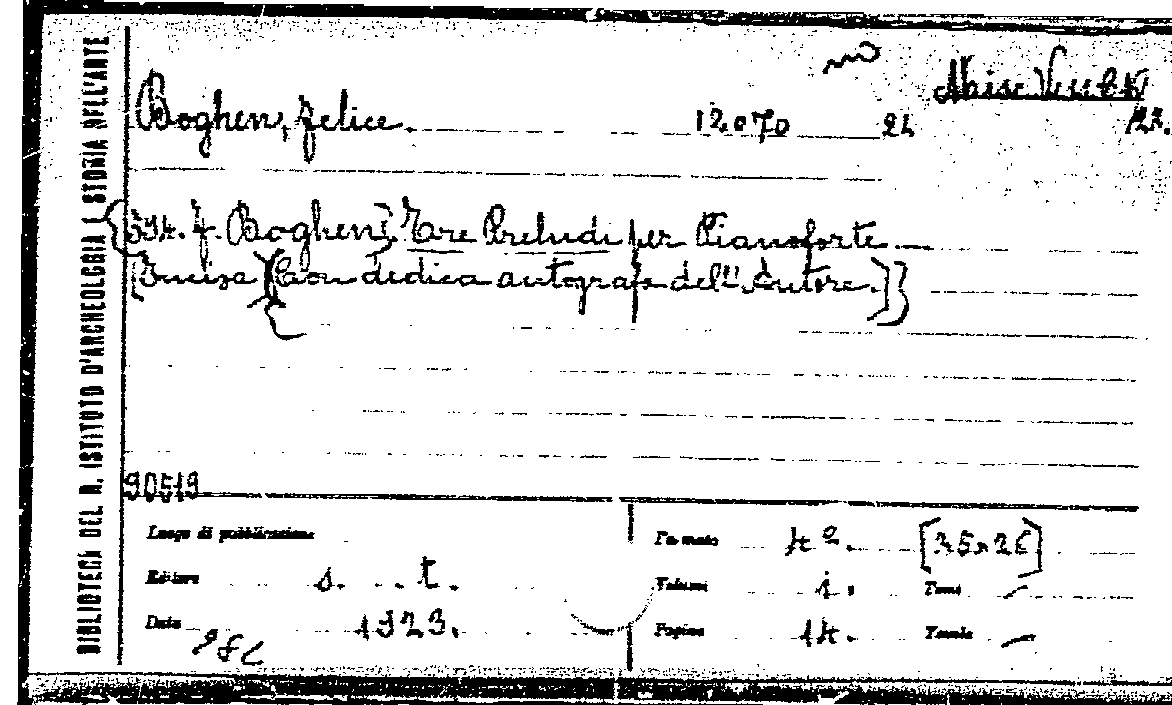 BIBLIOTECA DEL R. ISTITUTO D'ARCHEOLOGIA E STORIA DELL'ARTE
Boghen, Felice. 12.070
{394. F. Boghen} Tre Preludi per Pianoforte.—
(Con dedica autografa dell'Autore.)]}
90519
Luogo di pubblicazione
Formato 4º. [35x26]
Editore s. t.
Volumi 1. Tomi —
Data 1923.
Pagine 14. Tavole —